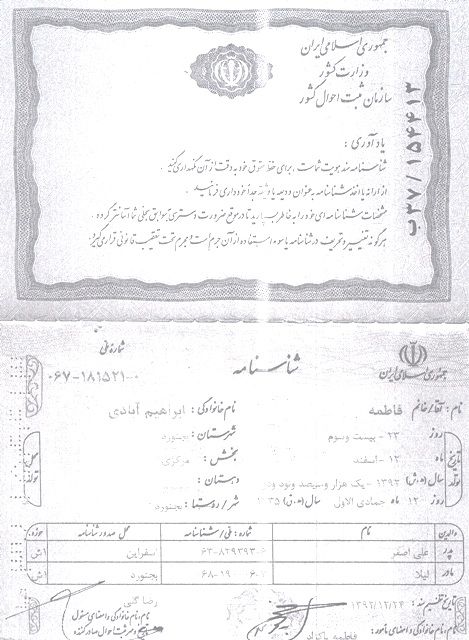 جمهوری اسلامی ایران
وزارت کشور
سازمان ثبت احوال کشور
یادآوری :
شناسنامه سند هویت شماست، برای حفظ حقوق خود به دقت از آن نگهداری کنید.
از ارائه یا اخذ شناسنامه به عنوان ودیعه یا وثیقه جداً خودداری فرمائید.
مشخصات شناسنامه ای خود را به خاطر بسپارید تا در موقع ضرورت دسترسی به سوابق سجلی شما آسانتر گردد.
هرگونه تغییر و تحریف در شناسنامه یا سوء استفاده از آن جرم است و مجرم تحت تعقیب قانونی قرار می گیرد.
ب۳۷/۱۵۴۴۱۳
جمهوری اسلامی ایران
شناسنامه
شماره ملی
۰۶۷-۱۸۱۵۲۱-۰
نام : آقا/خانم فاطمه
نام خانوادگی : ابراهیم آبادی
تاریخ تولد
روز ۲۳ - بیست و سوم
ماه ۱۲ - اسفند
سال (ه.ش) ۱۳۹۲ - یک هزار و سیصد و نود و
روز ۱۲ ماه جمادی الاول سال (ه.ق)
محل تولد
شهرستان : بجنورد
بخش : مرکزی
دهستان :
شهر / روستا : بجنورد
والدین نام شماره : ملی / شناسنامه محل صدور شناسنامه حوزه
پدر علی اصغر اسفراین ۱ش
مادر لیلا بجنورد ۱ش
تاریخ تنظیم سند : ۱۳۹۲/۱۲/۲۴
نام و نام خانوادگی و امضای مأمور : فاطمه پاکزاد
رضا گنی
نام و نام خانوادگی و امضای مسئول
و مهر ثبت احوال صادر کننده